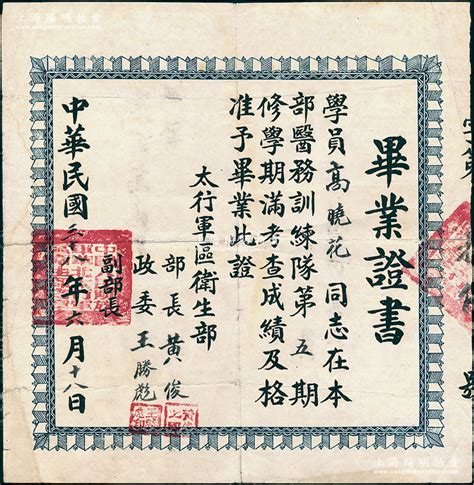 畢業證書
學員高曉花同志在本
部醫務訓練隊第五期
修學期滿考查成績及格
准予畢業此證
太行軍區衛生部
部長黃俊
政委王勝彪
副部長
中華民國三十八年六月十八日
號
上海陽明拍賣
上海陽明拍賣